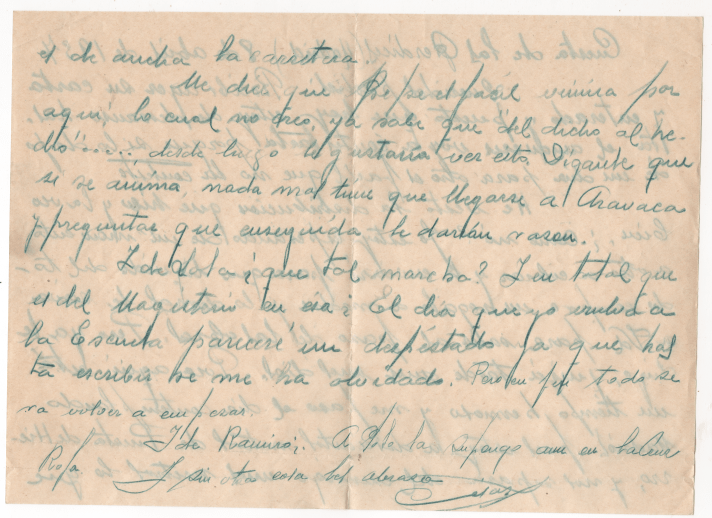 es de ancha la carretera.
Me dice que Pepe el fácil viniera por
aquí lo cual no creo, ya sabe que del dicho al he-
cho ....., desde luego le gustaría ver esto. Digante que
si se anima, nada mas tiene que llegarse a Aravaca
y preguntar que enseguida le darían razon.
Y de Lola ¿que tal marcha? Y en total que
es del Magisterio en esa? El día que yo vuelva a
la Escuela pareceré un despistado ya que has
ta escribir se me ha olvidado. Pero en fin todo se
va volver a empezar.
Y de Ramiro¿. A supongo aun en
Roja Y sin otra cosa les abraza